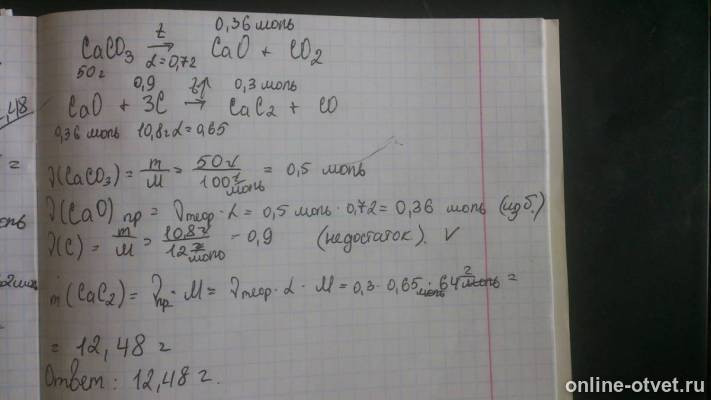 0,36 моль
CaCO₃ →(t, α=0,72) CaO + CO₂
50 г
0,9 t↑ 0,3 моль
CaO + 3C → CaC₂ + CO
0,36 моль 10,8г α=0,65
ν(CaCO₃) = m/M = 50 г/100 г/моль = 0,5 моль
ν(CaO) пр = νтеор · α = 0,5 моль · 0,72 = 0,36 моль (изб.)
ν(C) = m/M = 10,8 г/12 г/моль = 0,9 (недостаток). √
m(CaC₂) = νпр · M = νтеор · α · M = 0,3 · 0,65 моль · 64 г/моль =
= 12,48 г
Ответ: 12,48 г.
,48
=
online-otvet.ru